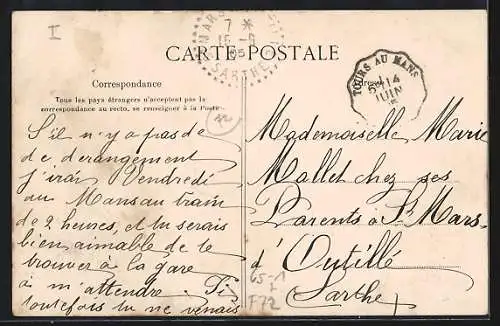 I
MARS
7 *
15 -6
05
SARTHE
CARTE POSTALE
TOURS AU MANS
14
JUIN
Correspondance
Tous les pays étrangers n'acceptent pas la
correspondance au recto, se renseigner à la Poste.
S'il n'y a pas de
de derangement
j'irai Vendredi
au Mans au train
de 2 heures, et tu serais
bien aimable de te
trouver à la gare
à m'attendre.
toutefois tu ne venais
Mademoiselle Marie
Mallet chez ses
Parents à St Mars-
d'Outillé
Sarthe
F72